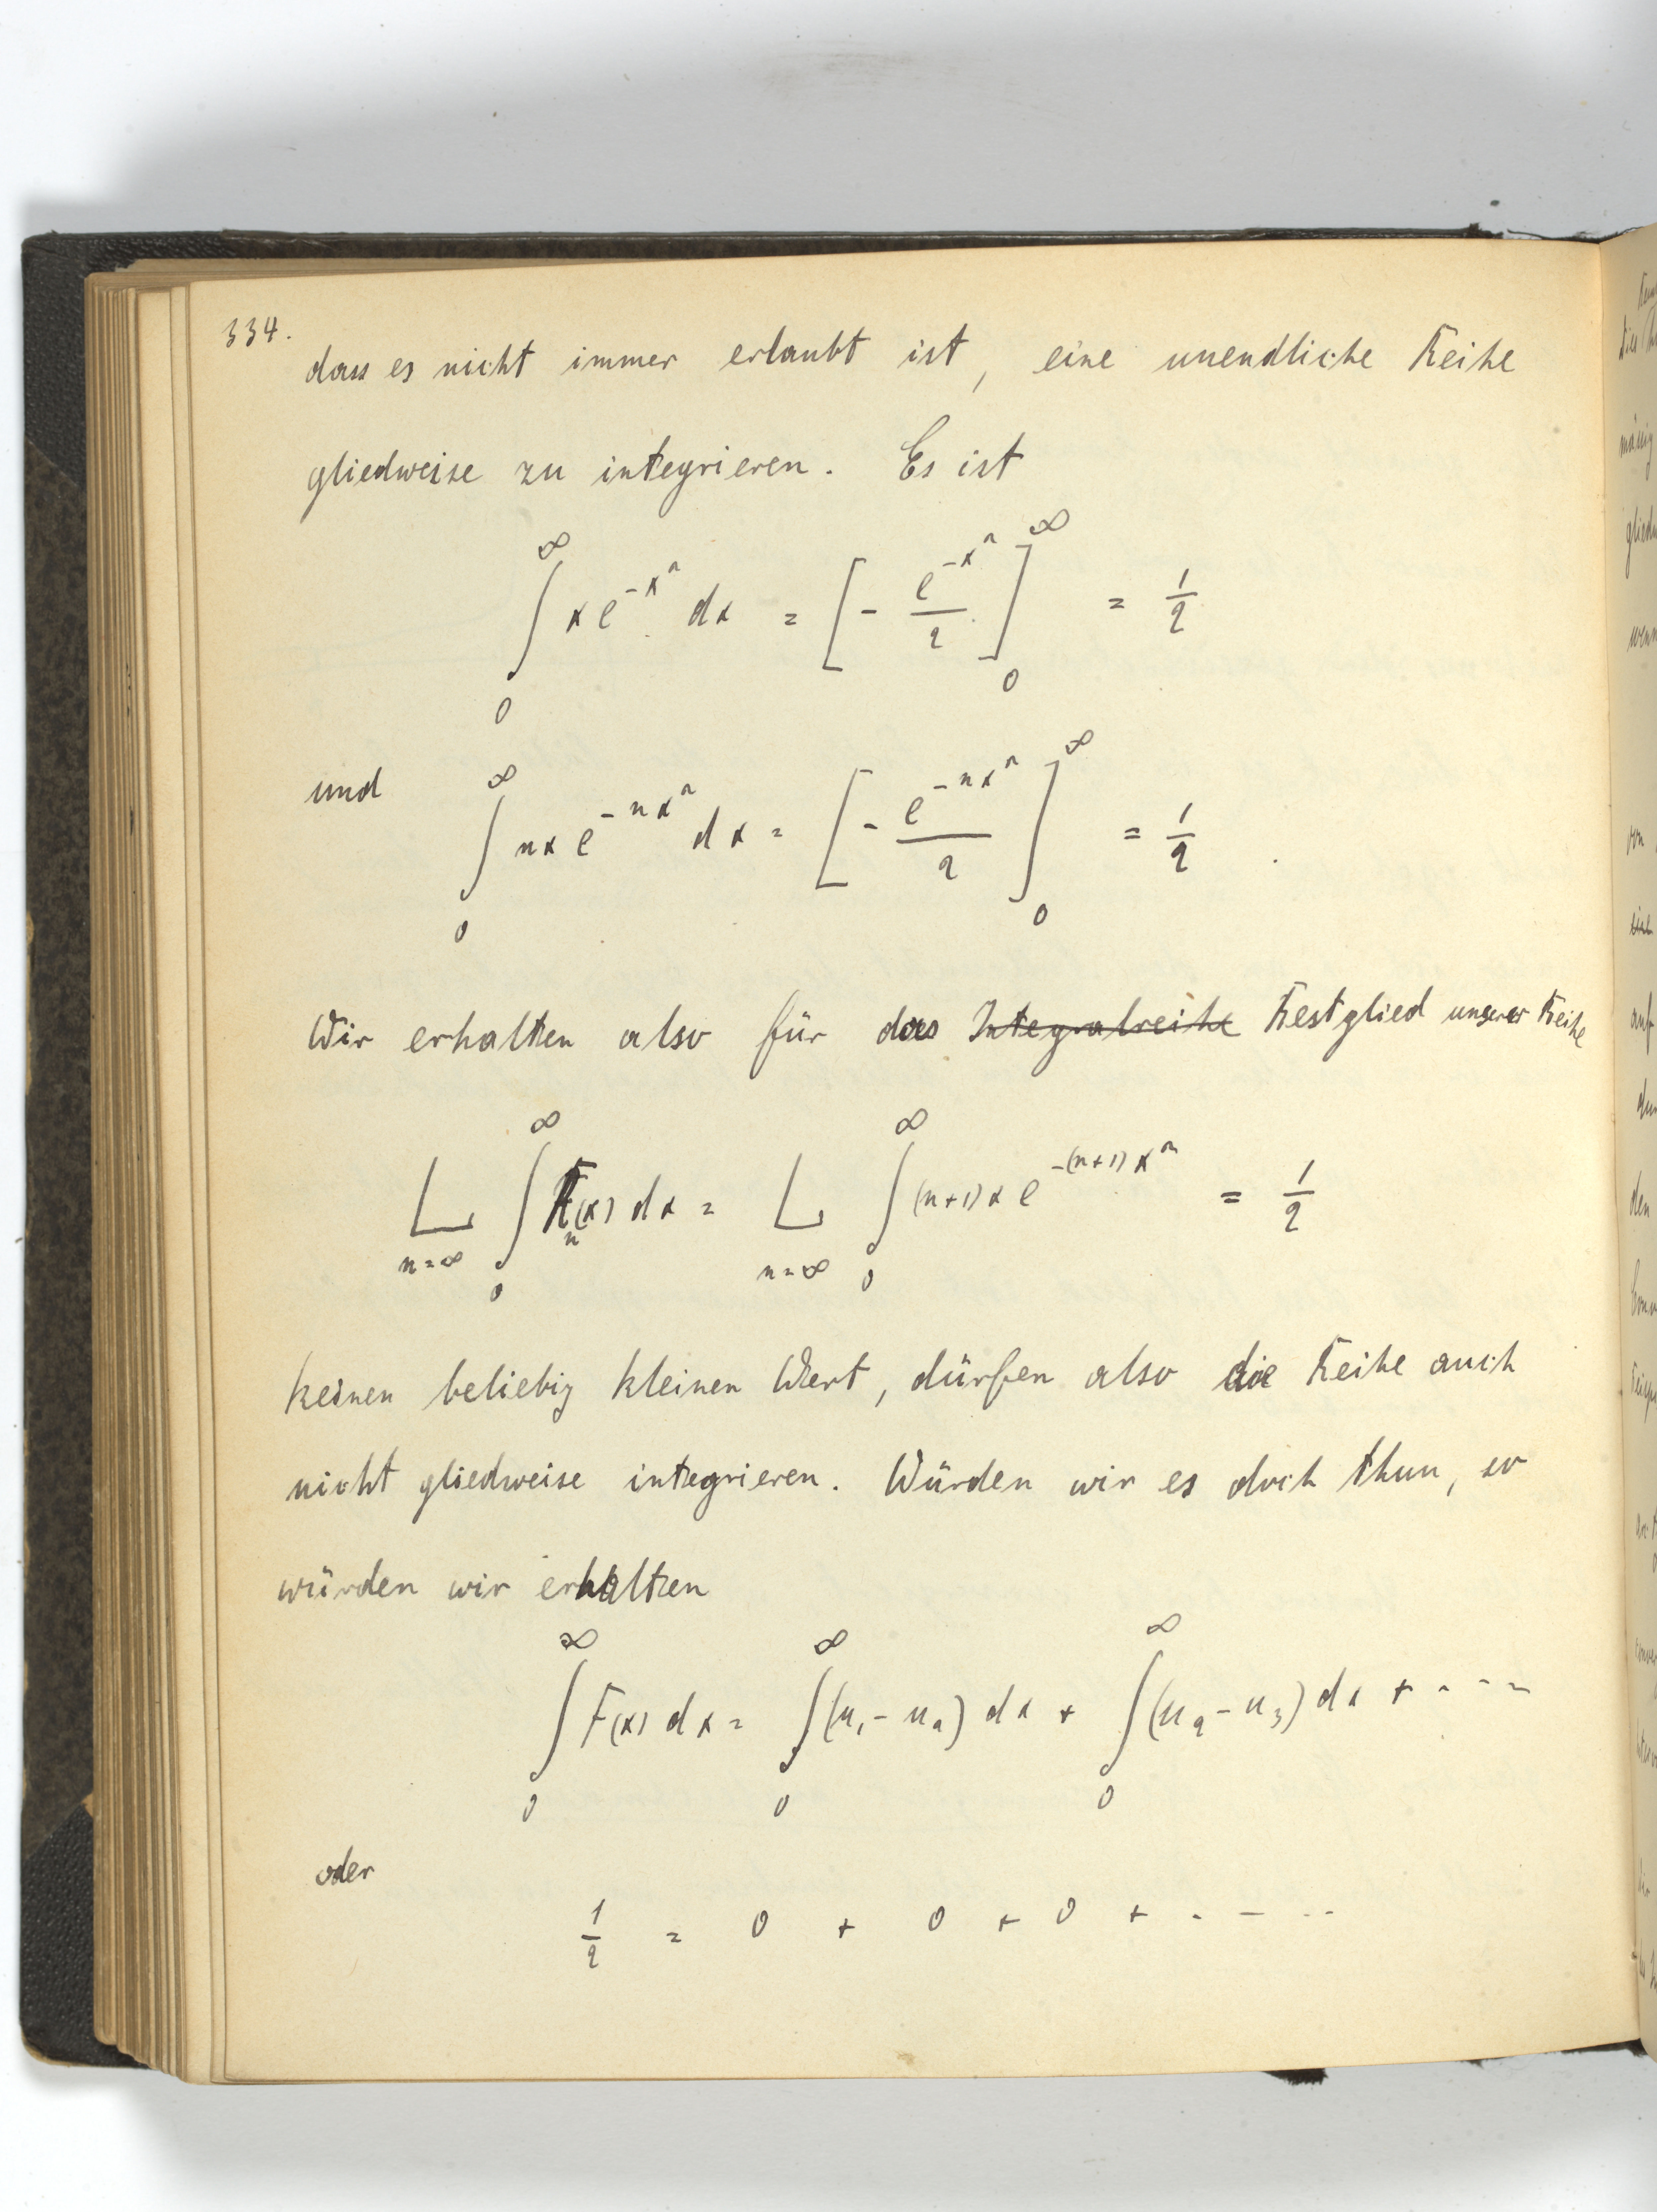 334.
dass es nicht immer erlaubt ist, eine unendliche Reihe
gliedweise zu integrieren. Es ist
∫₀^∞ x e^{-x²} dx = [ - e^{-x²}/2 ]₀^∞ = 1/2
und ∫₀^∞ nx e^{-nx²} dx = [ - e^{-nx²}/2 ]₀^∞ = 1/2.
Wir erhalten also für das Integralreihe Restglied unserer Reihe
L_{n=∞} ∫₀^∞ R_n(x) dx = L_{n=∞} ∫₀^∞ (n+1) x e^{-(n+1)x²} = 1/2
keinen beliebig kleinen Wert, dürfen also die Reihe auch
nicht gliedweise integrieren. Würden wir es doch thun, so
würden wir erhalten
∫₀^∞ F(x) dx = ∫₀^∞ (u₁ - u₂) dx + ∫₀^∞ (u₂ - u₃) dx + - - -
oder
1/2 = 0 + 0 + 0 + - - - -